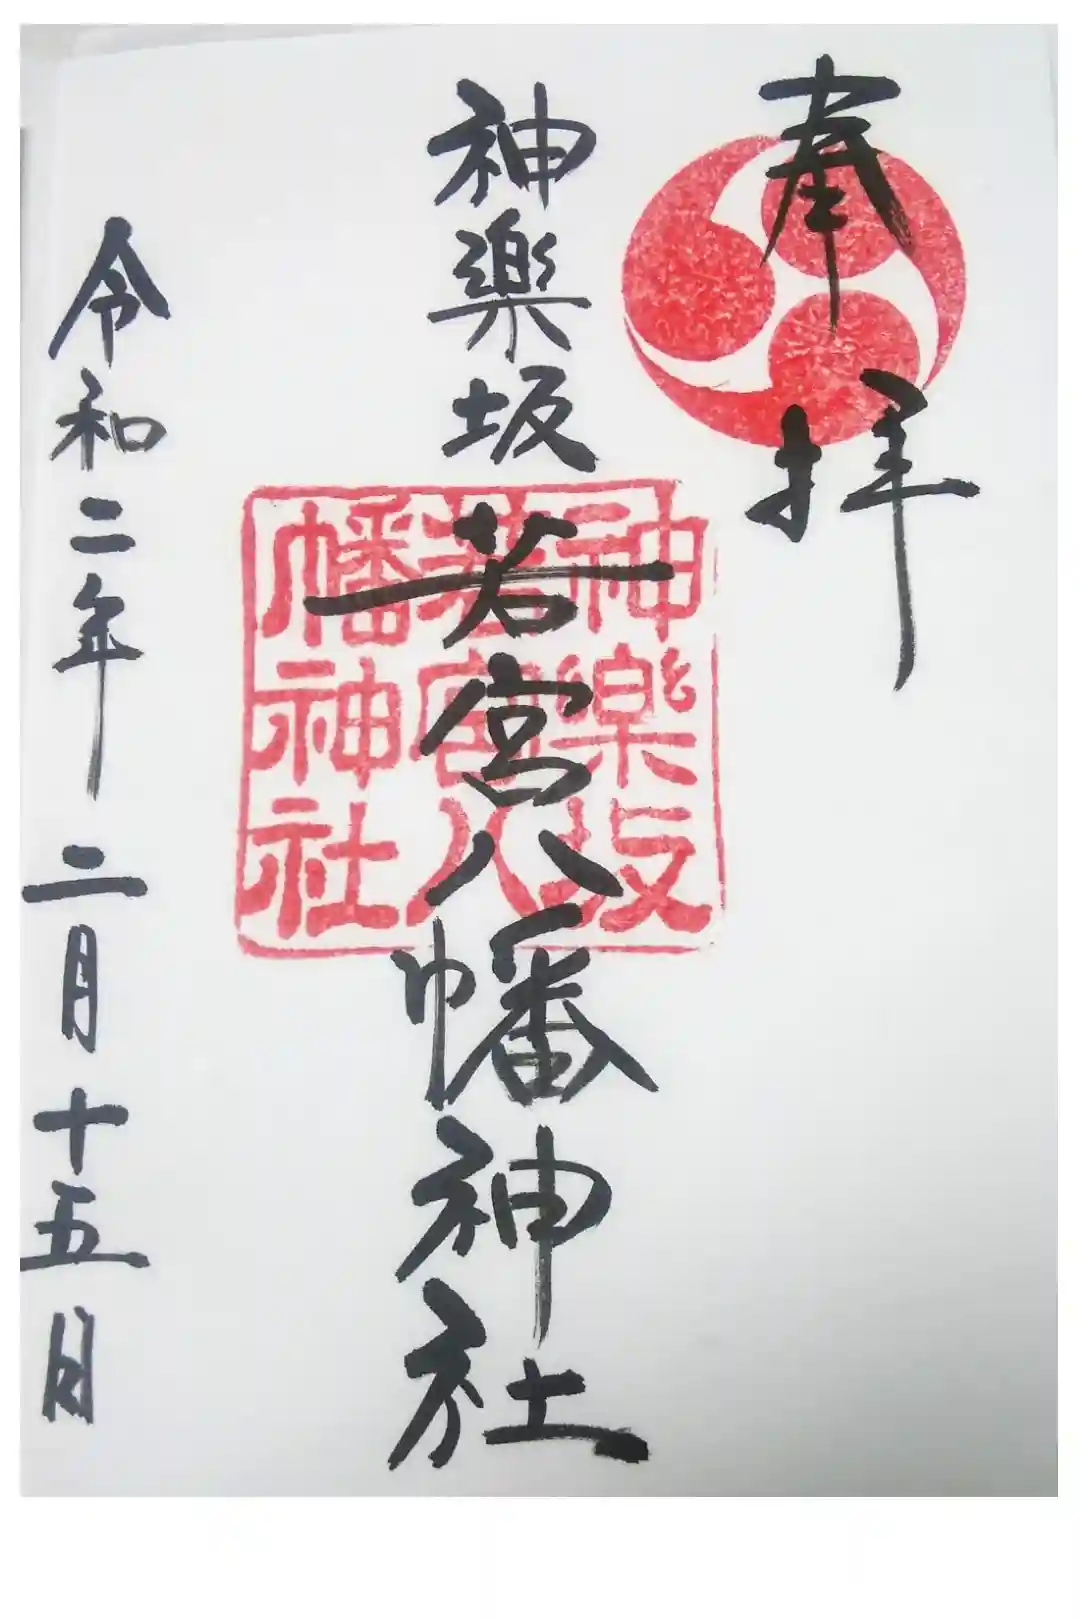 奉拝
神楽坂
若宮八幡神社
神樂坂
若宮八
幡神社
令和二年二月十五日